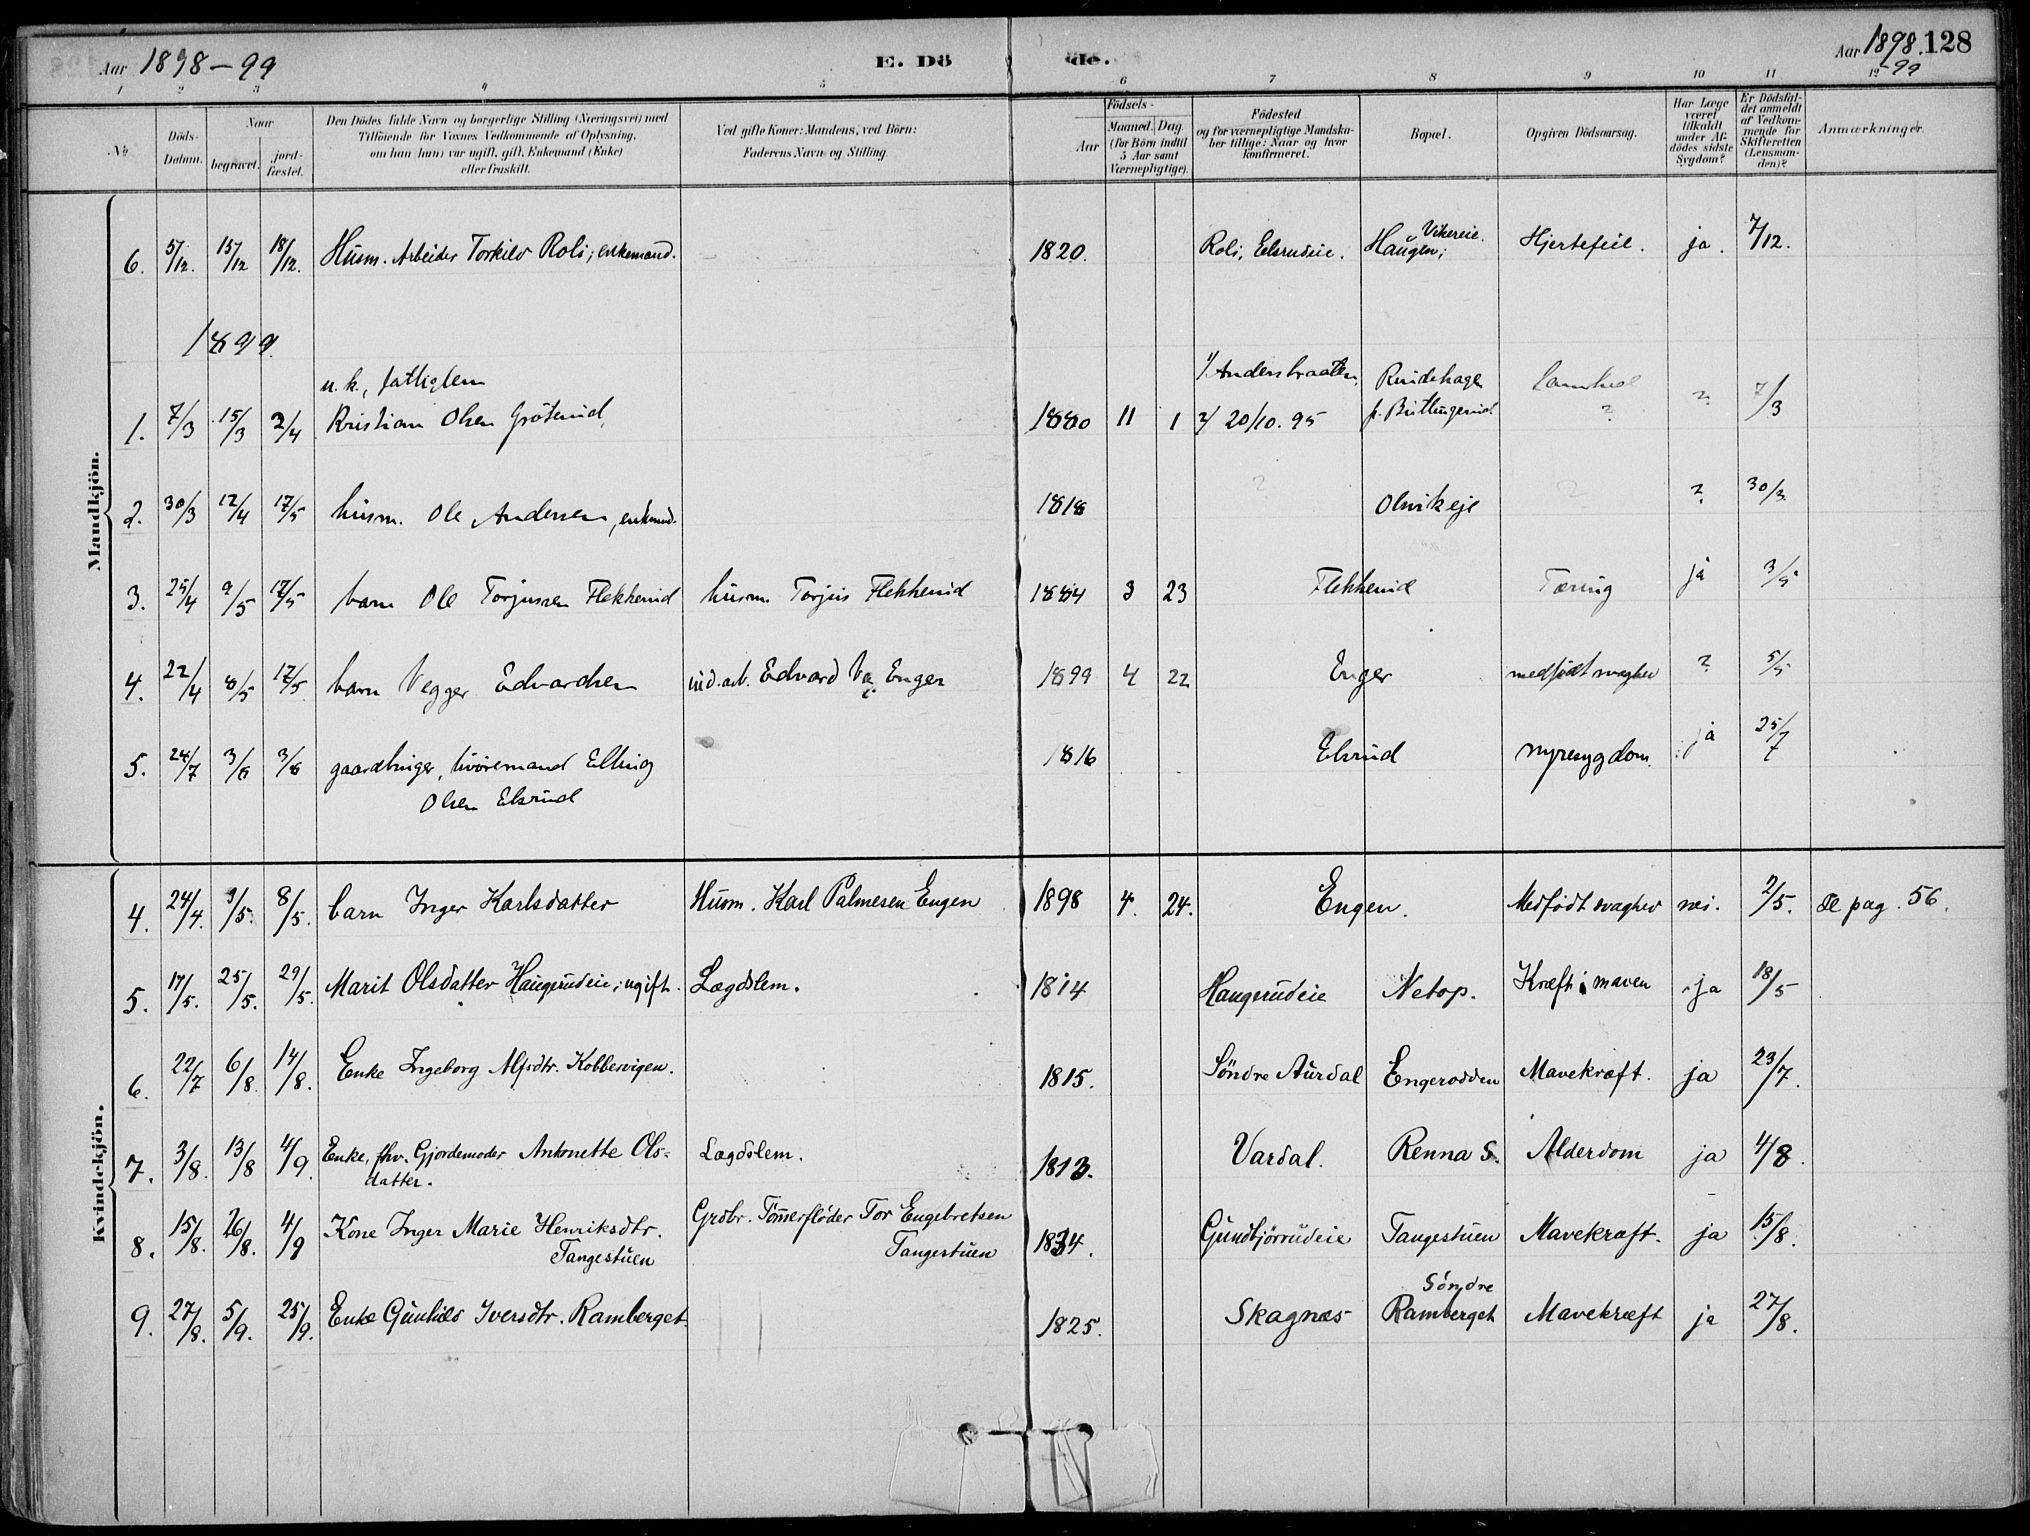 Aar 1898-99
E. Dö
de.
Aar 1898. 128
-99
1 2 3 4 5 6 7 8 9 10 11 12
No
Döds-Datum.
Naar
begravet.
jord-fæstet.
Den Dödes fulde Navn og borgerlige Stilling (Næringsvei) med
Tilföiende for Voxnes Vedkommende af Oplysning,
om han (hun) var ugift, gift, Enkemand (Enke)
eller fraskilt.
Ved gifte Koner: Mandens, ved Börn:
Faderens Navn og Stilling.
Födsels-
Aar
Maaned. Dag
(for Börn indtil
5 Aar samt
Værnepligtige).
Födested
og for værnepligtige Mandska-
ber tillige: Naar og hvor
konfirmeret.
Bopæl.
Opgiven Dödsaarsag.
Har Læge
været
tilkaldt
under Af-
dödes sidste
Sygdom?
Er Dödsfal-
det anmeldt
af Vedkom-
mende for
Skifteretten
(Lensman-
den)?
Anmærkninger.
Mandkjön.
6. 5/12. 15/12 18/12. Husm. Arbeider Torkild Roli; enkemand. 1820. Roli, Elsrudeie. Haugen; Vikereie. Hjertefeil. ja. 7/12.
1899.
u.k., fattiglem 1/ Andersbraaten
1. 7/3 15/3 2/4 Kristian Olsen Gröterud, 1880 11 1 2/ 20/10. 95 ? ? 7/3
2. 30/3 12/4 17/5 husm. Ole Andersen, enkmd. 1818 ? Olsvikeje ? ? 30/3
3. 25/4 9/5 17/5 barn Ole Torjussen Flekkerud husm. Torjus Flekkerud 1884 3 23 Flekkerud Tæring ja 3/5
4. 22/4 8/5 17/5 barn Vegger Edvardsen ind.arb. Edvard Enger 1899 4 22 Enger medfødt svaghed ? 5/5
5. 24/7 3/8 3/8 gaardbruger, livöremand Elling
Olsen Elsrud 1816 Elsrud nyresygdom. ja 25/7
Kvindekjön.
4. 24/4. 3/5. 8/5. barn Inger Karlsdatter Husm. Karl Palmesen Engen 1898 4. 24. Engen. Medfödt svaghed nei. 2/5. Se pag. 56.
5. 17/5. 25/5. 29/5. Marit Olsdatter Haugerudeie; ugift. Lægdslem. 1814 Haugerudeie Netop. Kræft i maven ja 18/5
6. 22/7 6/8. 14/8. Enke Ingeborg Alfsdtr. Kobbervigen. 1815. Söndre Aurdal Engerodden Mavekræft. ja 23/7.
7. 3/8. 13/8 4/9. Enke, fhv. Gjordemoder Antonette Ols-
datter. Lægdslem. 1813. Vardal. Renna S. Alderdom ja 4/8.
8. 15/8. 26/8. 4/9 Kone Inger Marie Henriksdtr.
Tangestuen Grdbr. Tömmerflöder Tor Engebretsen
Tangestuen 1834. Gundbjörrudeie Tangestuen Mavekræft. ja 15/8.
9. 27/8. 5/9. 25/9. Enke Gunhild Iversdtr. Ramberget. 1825. Skagnæs Söndre
Ramberget Mavekræft ja 27/8.